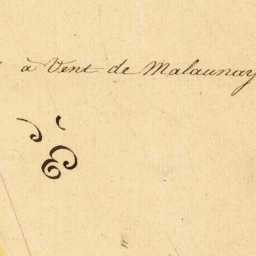 à Vent de Malaunay
E